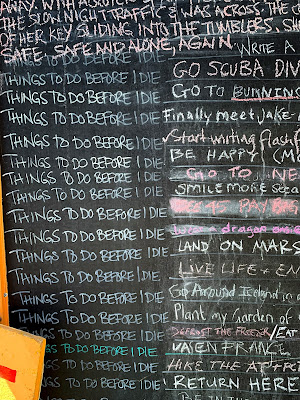 AWAY. WITH
THE SLOW NIGHT TRAFFIC & WAS ACROSS. THE
OF HER KEY SLIDING INTO THE TUMBLERS. SH
SAFE. SAFE AND ALONE, AGAIN.
WRITE A
THINGS TO DO BEFORE I DIE GO SCUBA DIV
THINGS TO DO BEFORE I DIE GO TO BURNING
THINGS TO DO BEFORE I DIE Finally meet Jake
THINGS TO DO BEFORE I DIE Start writing flash f
THINGS TO DO BEFORE I DIE BE HAPPY (M
THINGS TO DO BEFORE I DIE GO TO NE
THINGS TO DO BEFORE I DIE SMILE MORE
THINGS TO DO BEFORE I DIE PAY BA
THINGS TO DO BEFORE I DIE dragon
THINGS TO DO BEFORE I DIE LAND ON MARS
THINGS TO DO BEFORE I DIE LIVE LIFE + EN
THINGS TO DO BEFORE I DIE Go Around Iceland in a
THINGS TO DO BEFORE I DIE Plant my Garden of
THINGS TO DO BEFORE I DIE DEFROST THE FREEZER/EAT
THINGS TO DO BEFORE I DIE FRANCE
THINGS TO DO BEFORE I DIE HIKE THE
THINGS TO DO BEFORE I DIE RETURN HERE
BE IN THE